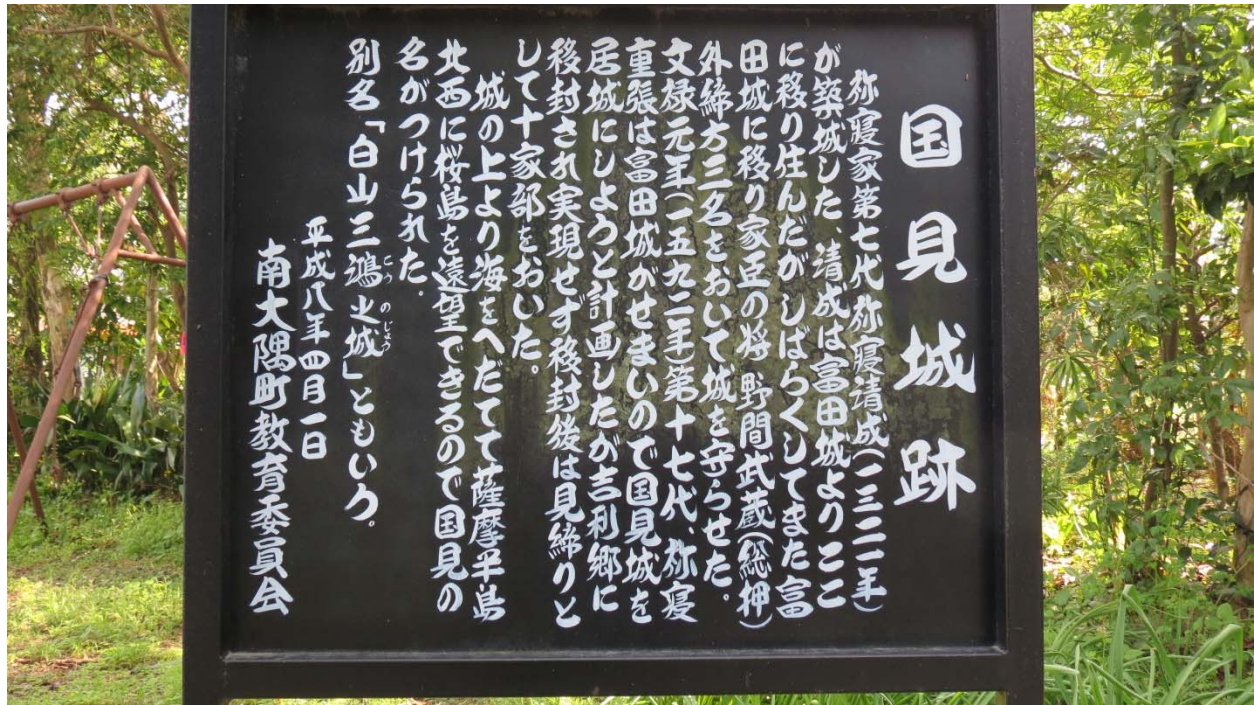 国見城跡
祢寝家第七代祢寝清成(一三二一年)
が築城した、清成は富田城よりここ
に移り住んだがしばらくしてまた富
田城に移り家臣の将 野間武蔵(総押)
外締方三名をおいて城を守らせた。
文禄元年(一五九二年)第十七代、祢寝
重張は富田城がせまいので国見城を
居城にしようと計画したが吉利郷に
移封され実現せず移封後は見締りと
して十家部をおいた。
城の上より海をへだてて薩摩半島
北西に桜島を遠望できるので国見の
名がつけられた。
別名「白山三鴻之城」ともいう。
こう のじょう
平成八年四月一日
南大隅町教育委員会